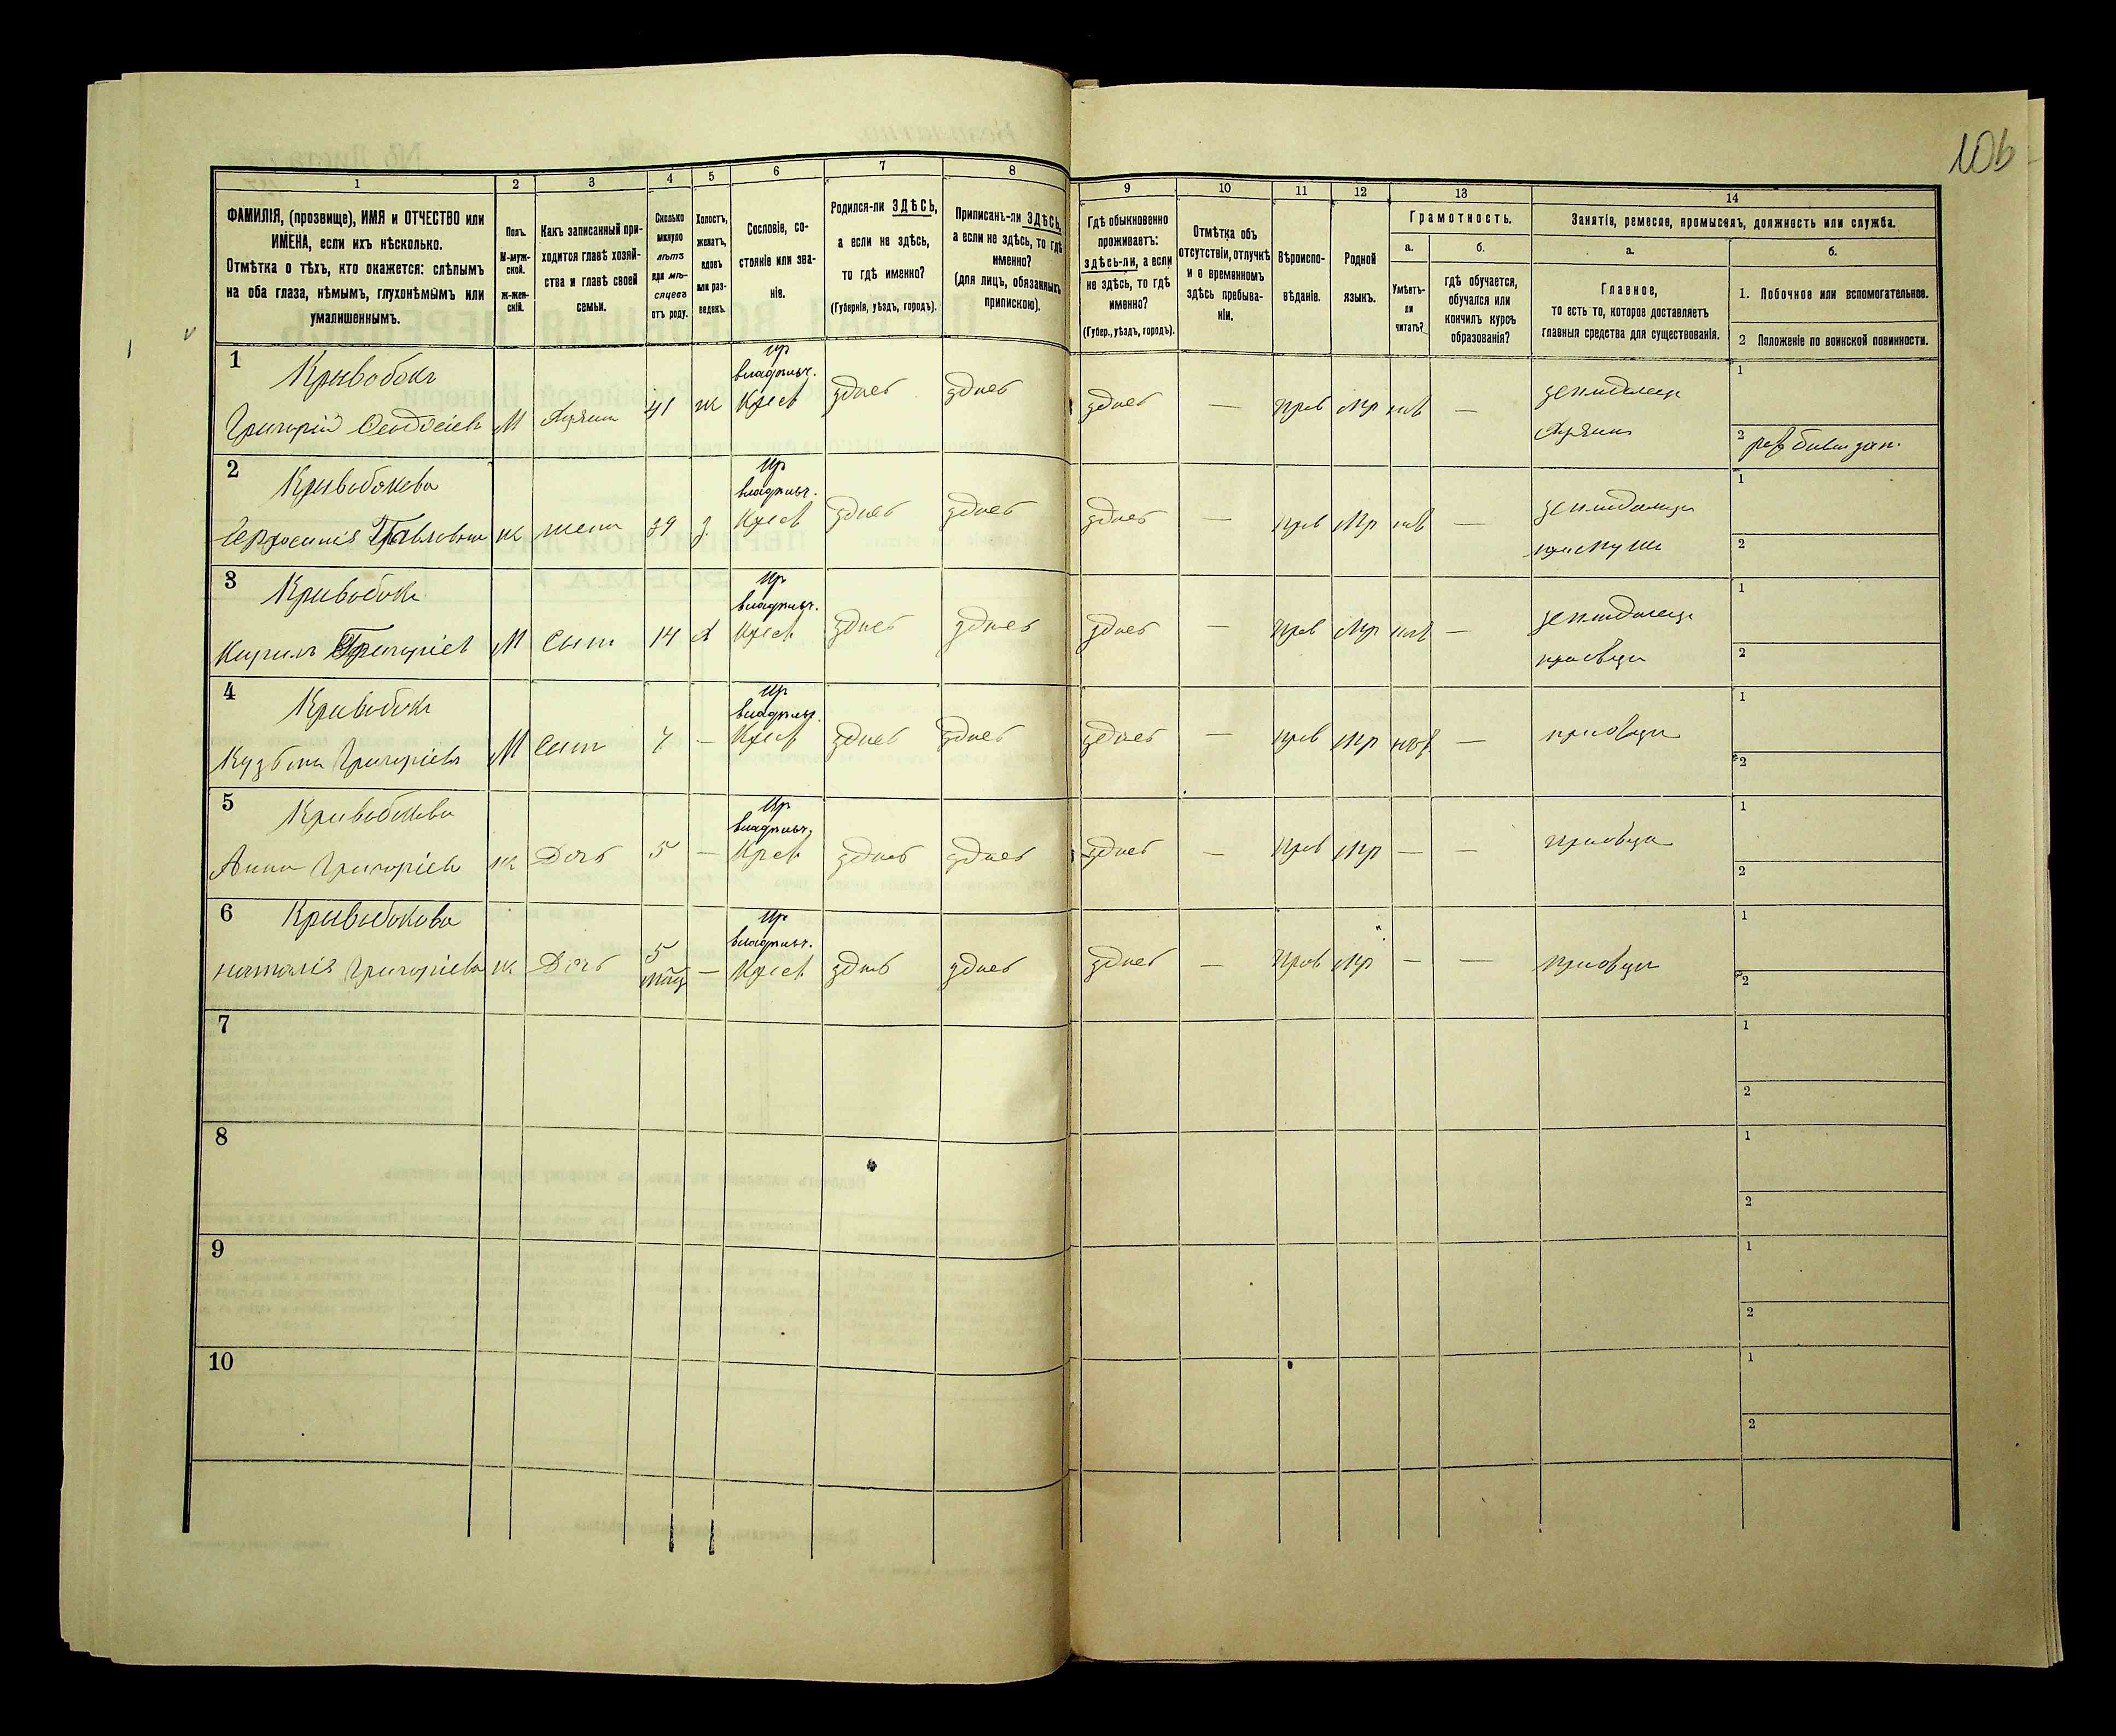 106
1
2
3
4
5
6
7
8
9
10
11
12
13
14
ФАМИЛІЯ, (прозвище), ИМЯ и ОТЧЕСТВО или
ИМЕНА, если ихъ нѣсколько.
Отмѣтка о тѣхъ, кто окажется: слѣпымъ
на оба глаза, нѣмымъ, глухонѣмымъ или
умалишеннымъ.
Полъ.
М-муж-
ской.
Ж-жен-
скій.
Какъ записанный при-
ходится главѣ хозяй-
ства и главѣ своей
семьи.
Сколько
минуло
лѣтъ
или мѣ-
сяцевъ
отъ роду.
Холостъ,
женатъ,
вдовъ
или раз-
веденъ.
Сословіе, со-
стояніе или зва-
ніе.
Родился-ли ЗДѢСЬ,
а если не здѣсь,
то гдѣ именно?
(Губернія, уѣздъ, городъ).
Приписанъ-ли ЗДѢСЬ,
а если не здѣсь, то гдѣ
именно?
(для лицъ, обязанныхъ
припискою).
Гдѣ обыкновенно
проживаетъ:
здѣсь-ли, а если
не здѣсь, то гдѣ
именно?
(Губер., уѣздъ, городъ).
Отмѣтка объ
отсутствіи, отлучкѣ
и о временномъ
здѣсь пребыва-
ніи.
Вѣроиспо-
вѣданіе.
Родной
языкъ.
Грамотность.
а.
Умѣетъ-
ли
читать?
б.
гдѣ обучается,
обучался или
кончилъ курсъ
образованія?
Занятіе, ремесло, промыселъ, должность или служба.
а.
Главное,
то есть то, которое доставляетъ
главныя средства для существованія.
б.
1. Побочное или вспомогательное.
2 Положеніе по воинской повинности.
1
Кривобокъ
Григорій Феодосіевъ М Хозяин 41 ж Крест здѣсь здѣсь здѣсь — прав Мр нѣт — земледелец
Хозяин
1
2
2
Кривобокова
Павловна ж жена 39 з. Крест здѣсь здѣсь здѣсь — прав Мр нѣт —
1
2
3
Кривобокъ
Кирилъ Григоріев М Сынъ 14 х Крест здѣсь здѣсь здѣсь — прав Мр нѣт —
1
2
4
Кривобокъ
Кузьма Григоріевъ М Сынъ — Крест здѣсь здѣсь здѣсь — прав Мр нѣт —
1
2
5
Кривобокова
Анна Григоріев ж Дочь 5 — Крест здѣсь здѣсь здѣсь — прав Мр — —
1
2
6
Кривобокова
Наталія Григоріева ж Дочь 5 — Крест здѣсь здѣсь здѣсь — прав Мр — —
1
2
7
1
2
8
1
2
9
1
2
10
1
2